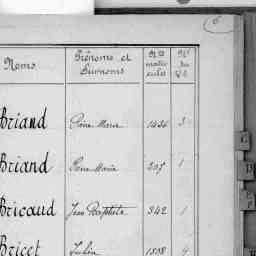 6
Noms Prénoms et Surnoms Nos matri-cules Nos du R.S.
Briand Pierre Marie 1434 3
Briand Pierre Marie 207 1
Bricaud Jean Baptiste 342 1
Bricet Julien 1808 4